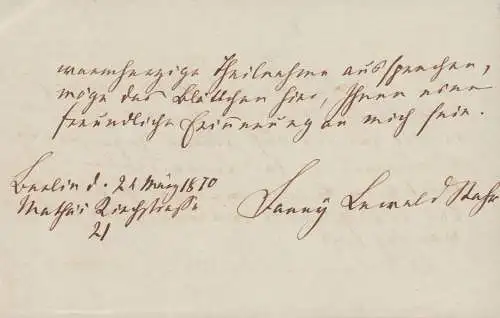 warmherzige Theilnahme aussprechen,
möge das Blättchen hier, Ihnen eine
freundliche Erinnerung an mich sein.
Berlin d. 21 März 1870
Mathäi Kirchstrasse
21
Fanny Lewald Stahr